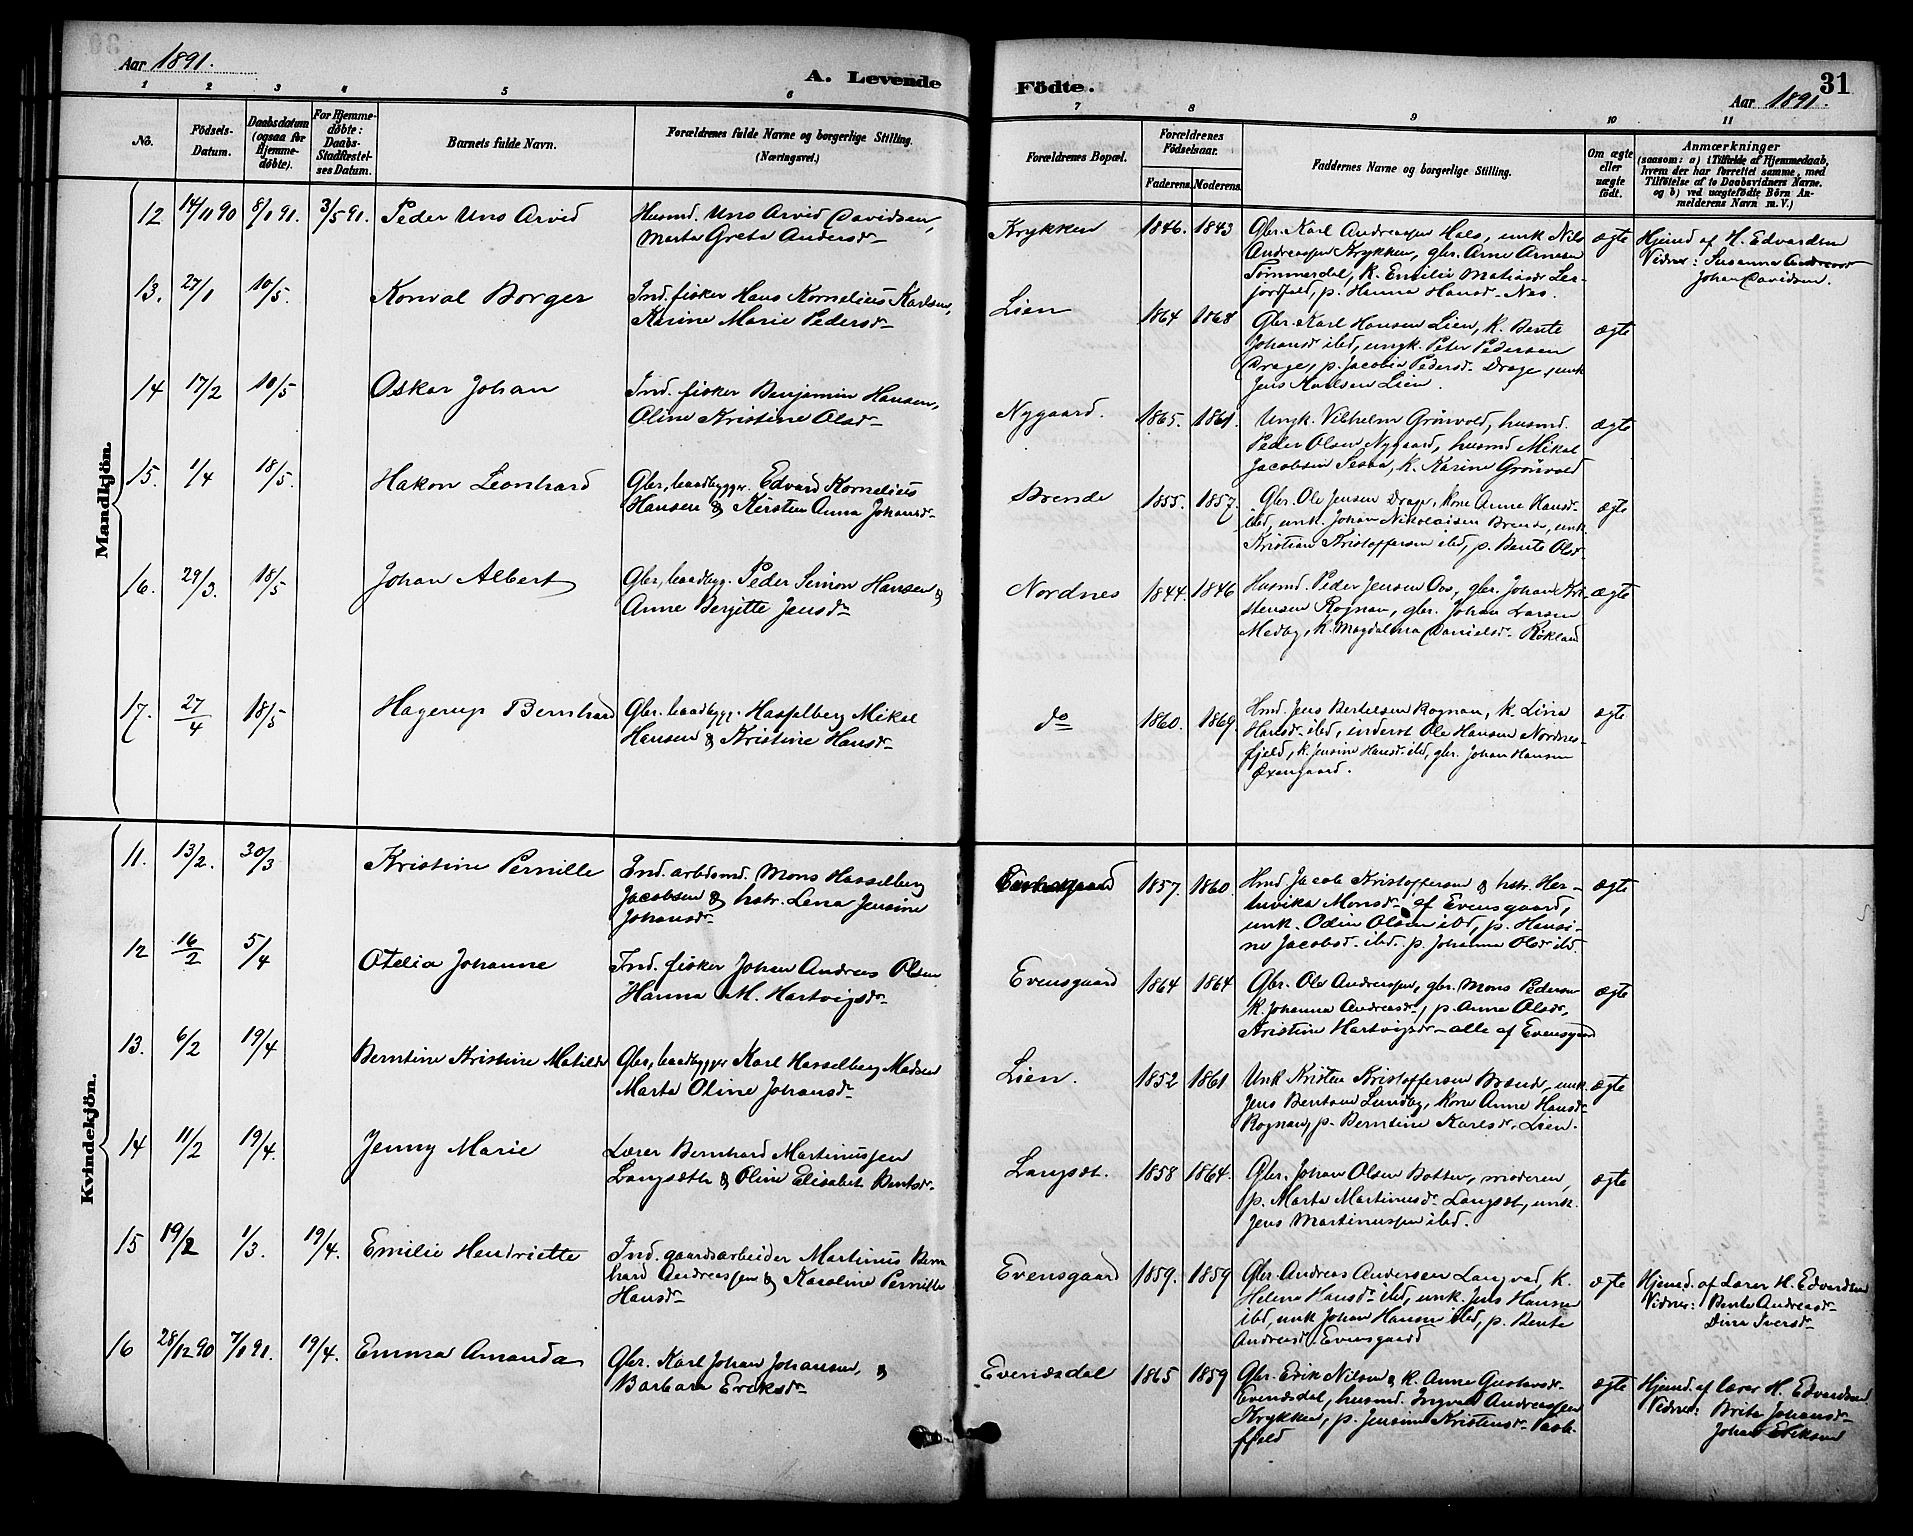 Aar 1891.
A. Levende
Födte.
31
Aar 1891.
1 2 3 4 5 6 7 8 9 10 11
No.
Födsels-
Datum.
Daabsdatum
(ogsaa for
Hjemme-
døbte).
For Hjemme-
døbte:
Daabs-
Stadfæstel-
ses Datum.
Barnets fulde Navn.
Forældrenes fulde Navne og borgerlige Stilling.
(Næringsvei.)
Forældrenes Bopæl.
Forældrenes
Födselsaar.
Faderens.
Moderens.
Faddernes Navne og borgerlige Stilling.
Om ægte
eller
uægte
født.
Anmærkninger
(saasom: a) i Tilfælde af Hjemmedaab,
hvem der har forrettet samme, med
Tilføielse af to Daabsvidners Navne.
og b) ved uægtefødte Börn An-
melderens Navn m. V.)
Mandkjön.
12 14/11 90 8/1 91. 3/5 91. Peder Uno Arvid
Husmd. Uno Arvid Davidsen,
Marta Greta Andersd.
Krykken 1846. 1843
Gbr. Karl Andreassen Hals, unk Nils
Andreassen Krykken, gbr. Arne Arnesen
Tømmerdal, k. Emilie Matiasd.
p. Hanna Hansd. Nas.
ægte
Hjemd af H. Edvardsen
Vidner: Susanna
Johan Davidsen.
13. 27/1 10/5. Konval Borger
Ind. fisker Hans Kornelius Karlsen,
Karine Marie Pedersd.
Lien 1864 1868
Gbr. Karl Hansen Lien, k. Bente
Johansd ibd, ungk. Peter Pedersen
Drage, p. Jacobia Pedersd. Drage, unk
Jens Karlsen Lien.
ægte
14 17/2 10/5 Oskar Johan
Ind. fisker Benjamin Hansen,
Oline Kristine Olsd.
Nygaard. 1865. 1861.
Ungk. Vilhelm Grönvold, husmd.
Peder Olsen Nygaard, husmd Mikal
Jacobsen k. Karine Grönvold
ægte
15. 1/4 18/5. Hakon Leonhard
Gbr, baadbygger. Edvard Kornelius
Hansen & Kirsten Anna Johansd.
Brende 1855. 1857.
Gbr. Ole Jensen Drage, kone Anne Hansd.
ibd, unk. Johan Nikolaisen unk
Kristian Kristoffersen ibd, p. Bente Olsd
ægte
16. 29/3. 18/5 Johan Albert
Gbr, baadbyg. Peder Simon Hansen &
Anne Bergitte Jensd.
Nordnes 1844. 1846
Husmd. Peder Jensen gbr. Johan Kri-
stensen Rognan, gbr. Johan Larsen
Medby, k. Magdalena Danielsd. Røkland
ægte
17. 27/4 18/5 Hagerup Bernhard
Gbr. baadbygg. Hasselberg Mikal
Hansen & Kristine Hansd.
do 1860. 1869.
Hmd. Jens Bertelsen Rognan, k. Lina
Hansd. ibd, inderst Ole Hansen Nordnes-
fjeld, k. Jensine Hansd. ibd, gbr. Johan Hansen
Oxengaard.
ægte
Kvindekjön.
11. 13/2. 30/3 Kristine Pernille
Ind. arbdsmd. Mons Hasselberg
Jacobsen & hstr. Lena Jensine
Johansd.
1857. 1860.
Hmd. Jacob Kristoffersen & hstr. Hen-
Monsd. af Evensgaard,
unk. Odin Olsen ibd, p. Hansi-
ne Jacobsd. ibd. p. Johanna Olsd ibd.
ægte
12 16/2 5/4 Otelia Johanne
Ind. fisker Johan Andreas Olsen
Hanna M. Hartvigsd.
Evensgaard 1864 1864
Gbr. Ole Andreassen, gbr. Mons Pedersen
k. Johanna Andreasd., p. Anne Olsd,
Kristine Hartvigsd. alle af Evensgaard
ægte
13. 6/2 19/4 Berntine Kristine Matilde
Gbr, baadbygger Karl Hasselberg Madsen
Marta Oline Johansd.
Lien. 1852 1861
Unk Kristen Kristoffersen unk.
Jens Bentsen Lundby, kone Anne Hansd.
Rognan, p. Berntine Karlsd. Lien.
ægte
14 11/2 19/4. Jenny Marie
Lærer Bernhard Martinussen
Langsæth & Oline Elisabet Bentsd.
Langsæt. 1858 1864.
Gbr. Johan Olsen Botten, moderen,
p. Marta Martinusd. Langsæt, unk.
Jens Martinussen ibd.
ægte
15 19/2 1/3. 19/4. Emilie Hendriette
Ind. gaardsarbeider Martinus Bern
hard Andreassen & Karoline Pernille
Hansd.
Evensgaard 1859. 1859
Gbr. Andreas Andersen Langvad, k.
Helena Hansd. ibd, unk. Jens Hansen
ibd, unk Johan Hansen ibd, p. Bente
Andreasd. Evensgaard
ægte
Hjemd. af Lærer H. Edvardsen
Vidner: Bente Andreasd.
Dina Iversd.
16 28/12 90 7/1 91. 19/4. Emma Amanda
Gbr. Karl Johan Johansen, &
Barbara Eriksd.
Evensdal 1865 1859
Gbr. Erik Nilsen & k. Anne Gustavsd.
Evensdal, husmd. Ingvald Andreassen
Krykken, p. Jensine Kristensd.
fjeld
ægte
Hjemd. af lærer H. Edvardsen
Vidner: Brita Johansd.
Johan Eriksen